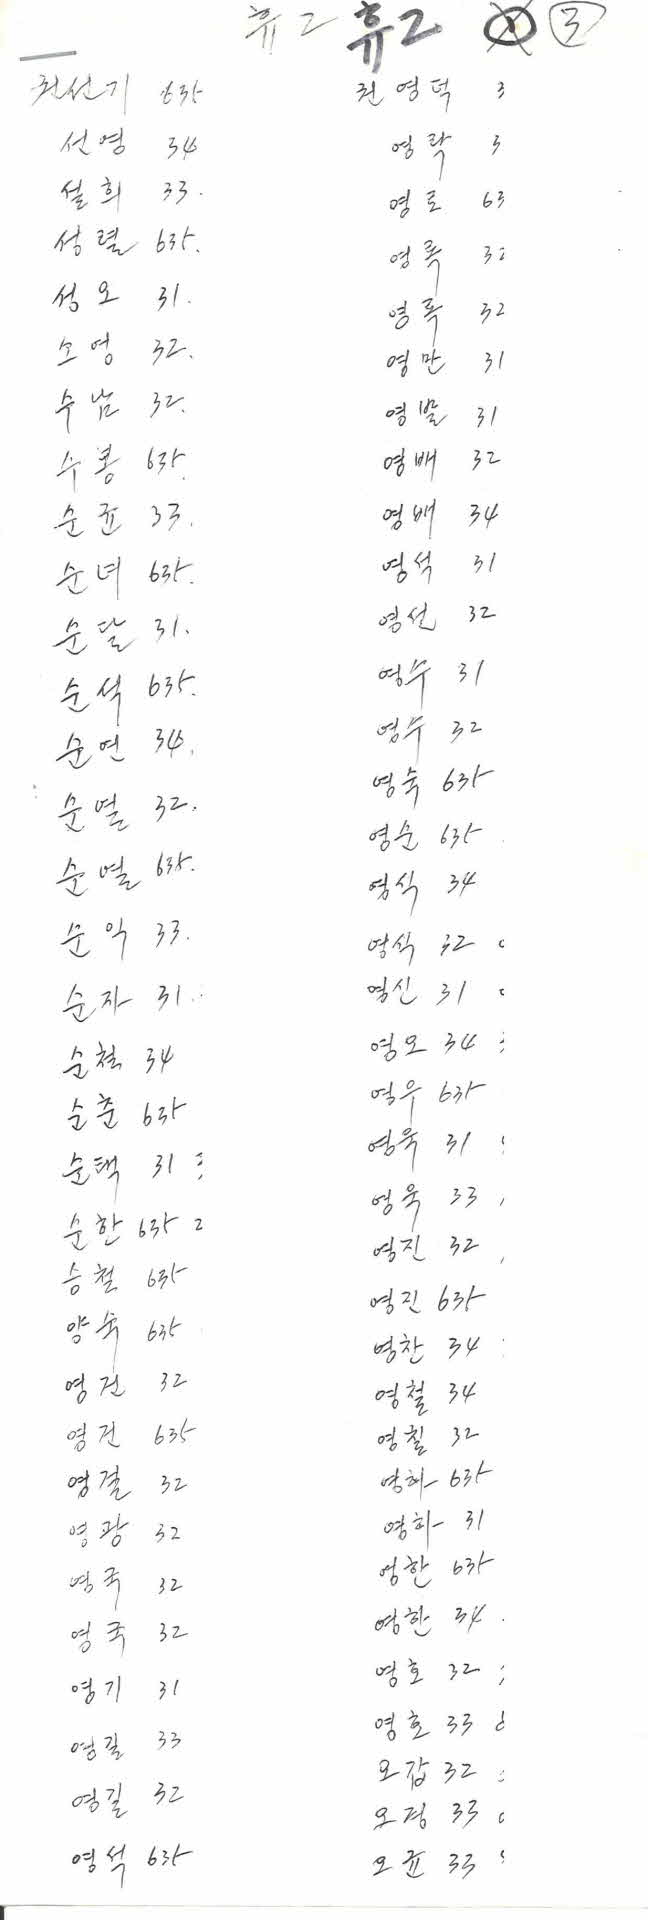 휴2 휴2 ① ③
권선기 635
선영 34
설희 33.
성렬 635.
성오 31.
소영 32.
수남 32.
수봉 635.
순균 33.
순녀 635.
순달 31.
순석 635.
순연 34.
순열 32.
순열 635.
순익 33.
순자 31
순철 34
순춘 635
순택 31
순한 635 2
승철 635
양숙 635
영건 32
영건 635
영걸 32
영광 32
영국 32
영국 32
영기 31
영길 33
영길 32
영석 635
권영덕 3
영락 3
영로 63
영록 32
영록 32
영만 31
영발 31
영배 32
영배 34
영석 31
영선 32
영수 31
영수 32
영숙 635
영순 635
영식 34
영식 32
영신 31
영오 34
영우 635
영욱 31
영욱 33
영진 32
영진 635
영찬 34
영철 34
영칠 32
영하 635
영하 31
영한 635
영한 34
영호 32
영호 33
오갑 32
오경 33
오균 33